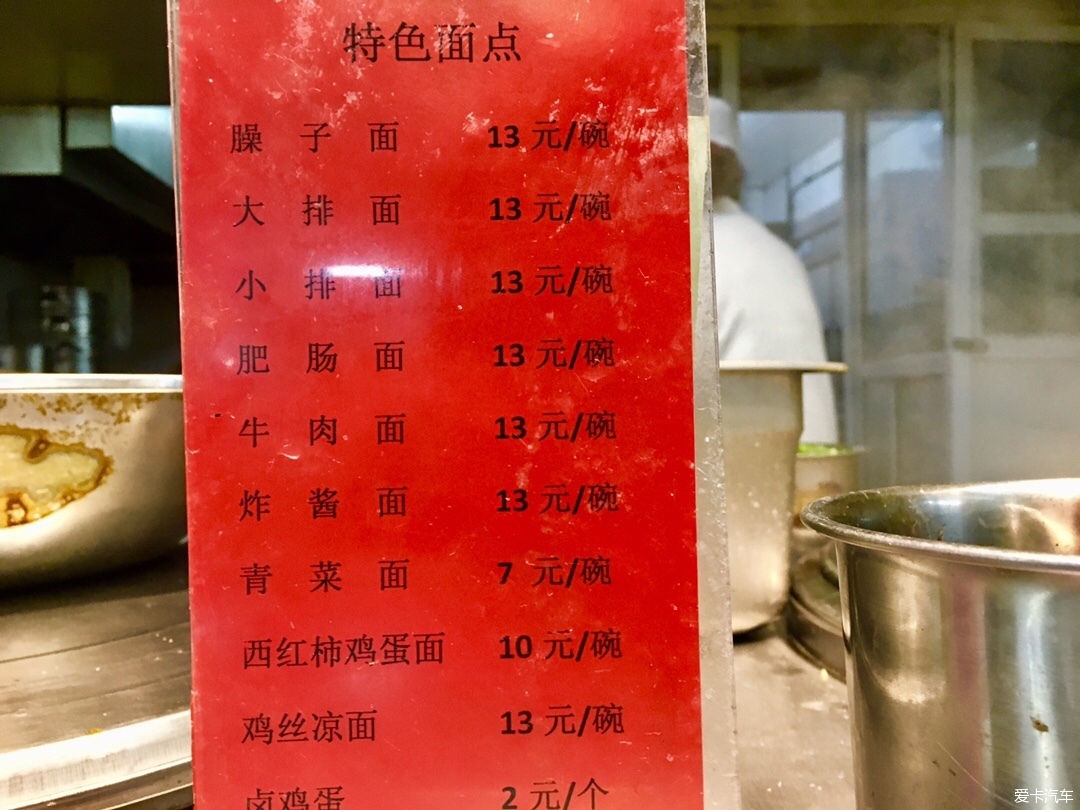 特色面点
臊 子 面 13 元/碗
大 排 面 13 元/碗
小 排 面 13 元/碗
肥 肠 面 13 元/碗
牛 肉 面 13 元/碗
炸 酱 面 13 元/碗
青 菜 面 7 元/碗
西红柿鸡蛋面 10 元/碗
鸡丝凉面 13 元/碗
卤鸡蛋 2 元/个
爱卡汽车